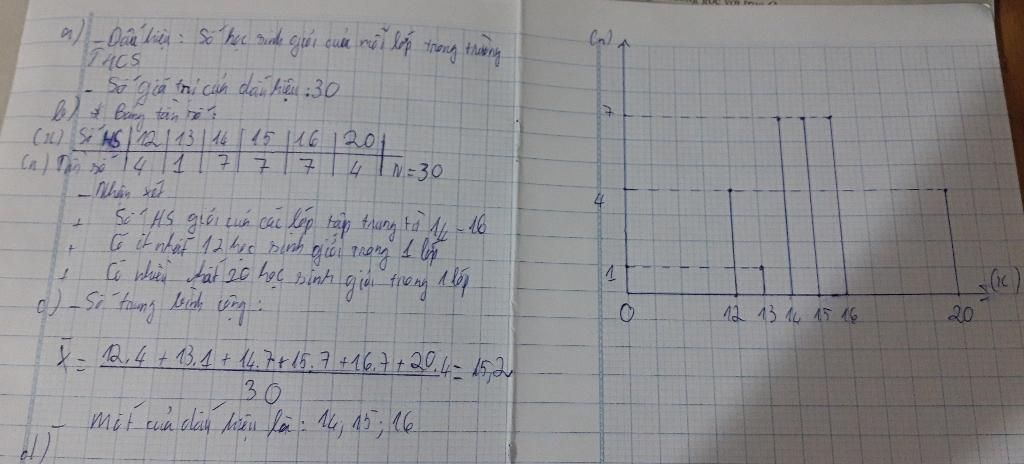 a) - Dấu hiệu : Số học sinh giỏi của mỗi lớp trong trường
THCS
- Số giá trị của dấu hiệu : 30
b) * Bảng tần số :
(x) Số HS | 12 | 13 | 14 | 15 | 16 | 20 |
(n) Tần số | 4 | 1 | 7 | 7 | 7 | 4 | N = 30
- Nhận xét
+ Số HS giỏi của các lớp tập trung từ 14 - 16
+ Có ít nhất 12 học sinh giỏi trong 1 lớp
+ Có nhiều nhất 20 học sinh giỏi trong 1 lớp
c) - Số trung bình cộng :
X̄ = 12.4 + 13.1 + 14.7 + 15.7 + 16.7 + 20.4 = 15,2
30
- Mốt của dấu hiệu là : 14 ; 15 ; 16
d)
(n)
7
4
1
0 12 13 14 15 16 20
(x)